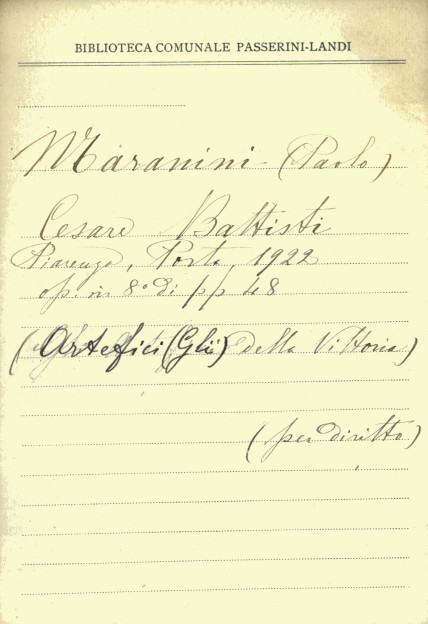 BIBLIOTECA COMUNALE PASSERINI-LANDI
Maranini (Paolo)
Cesare Battisti
Piacenza, Porta, 1922
op. in 8° di pp 48
(Artefici (Gli) della Vittoria)
(per diritto)